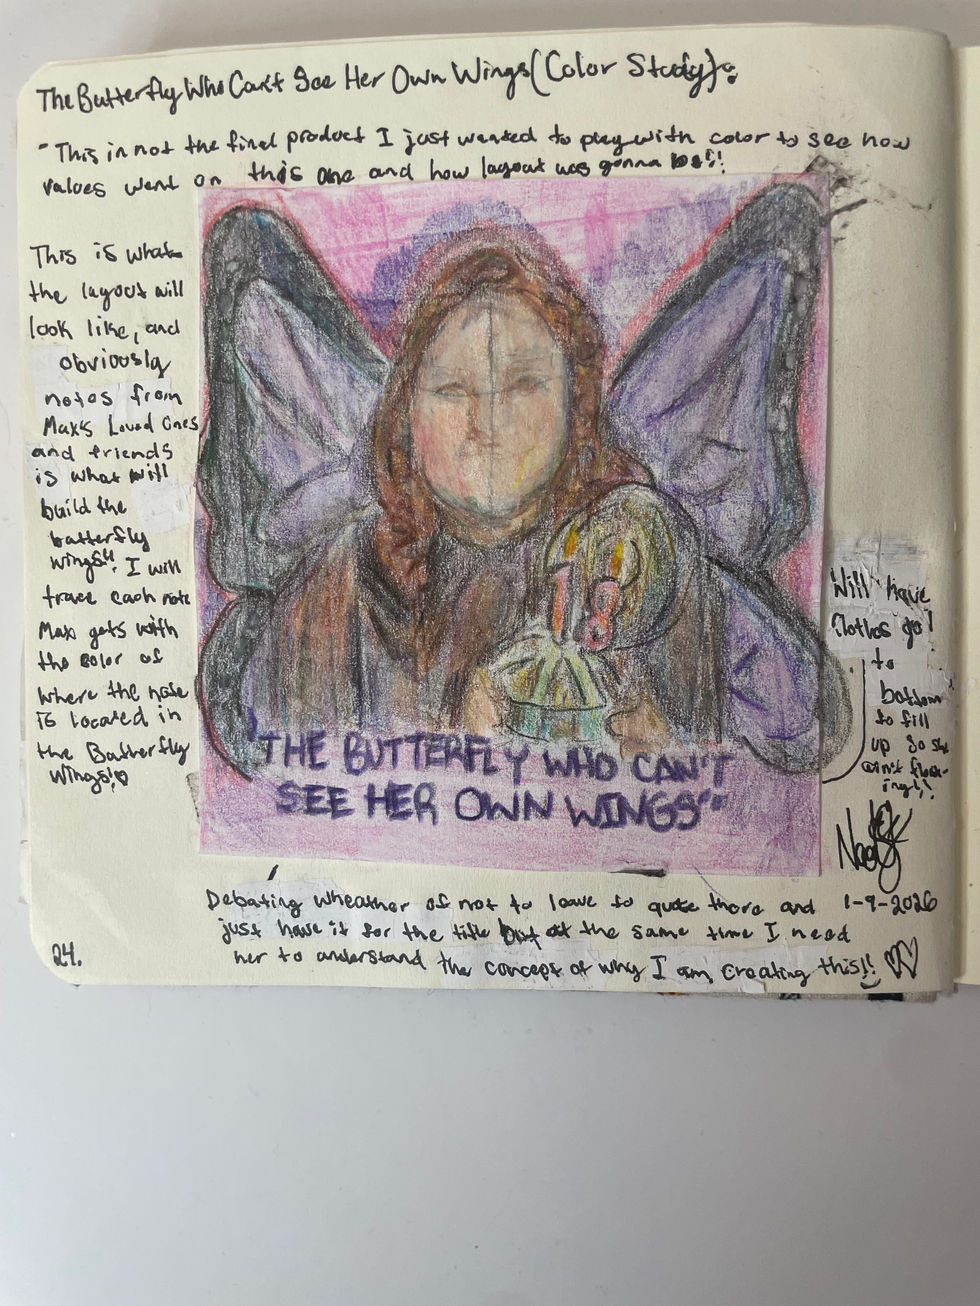 The Butterfly Who Can't See Her Own Wings (Color Study):
"This in not the final product I just wanted to play with color to see how
values went on this one and how layout was gonna be!!
This is what
the layout will
look like, and
obviously
notes from
Max's Loved Ones
and friends
is what will
build the
butterfly
wings!! I will
trace each note
Max gets with
the color of
where the note
is located in
the Butterfly
Wings!
18
"THE BUTTERFLY WHO CAN'T
SEE HER OWN WINGS"
Will have
Clothes go
to
bottom
to fill
up so she
ain't float-
ing!!
1-9-2026
Debating wheather of not to leave to quote there and
just have it for the title but at the same time I need
her to understand the concept of why I am creating this!!
24.